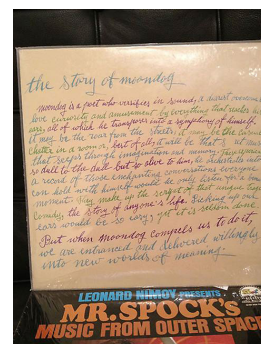 the story of moondog
moondog is a poet who versifies in sound, a diarist overcome by
love curiosity and amusement by everything that reaches his
ears, all of which he transposes into a symphony of himself.
it may be the roar from the streets, it may be the
chatter in a room, best of all it will be that
that seeps through imagination and memory.
so dull to the dull but so alive to him, he
a record of those enchanting conversations everyone
can hold with himself would he only listen for a
moment. They make up the script of that unique tragi-
comedy, the story of anyone's life. Picking up our
ears would be so easy yet it is seldom done.
But when moondog compels us to do it,
we are entranced and delivered willingly
into new worlds of meaning
LEONARD NIMOY PRESENTS
MR. SPOCK'S
MUSIC FROM OUTER SPACE